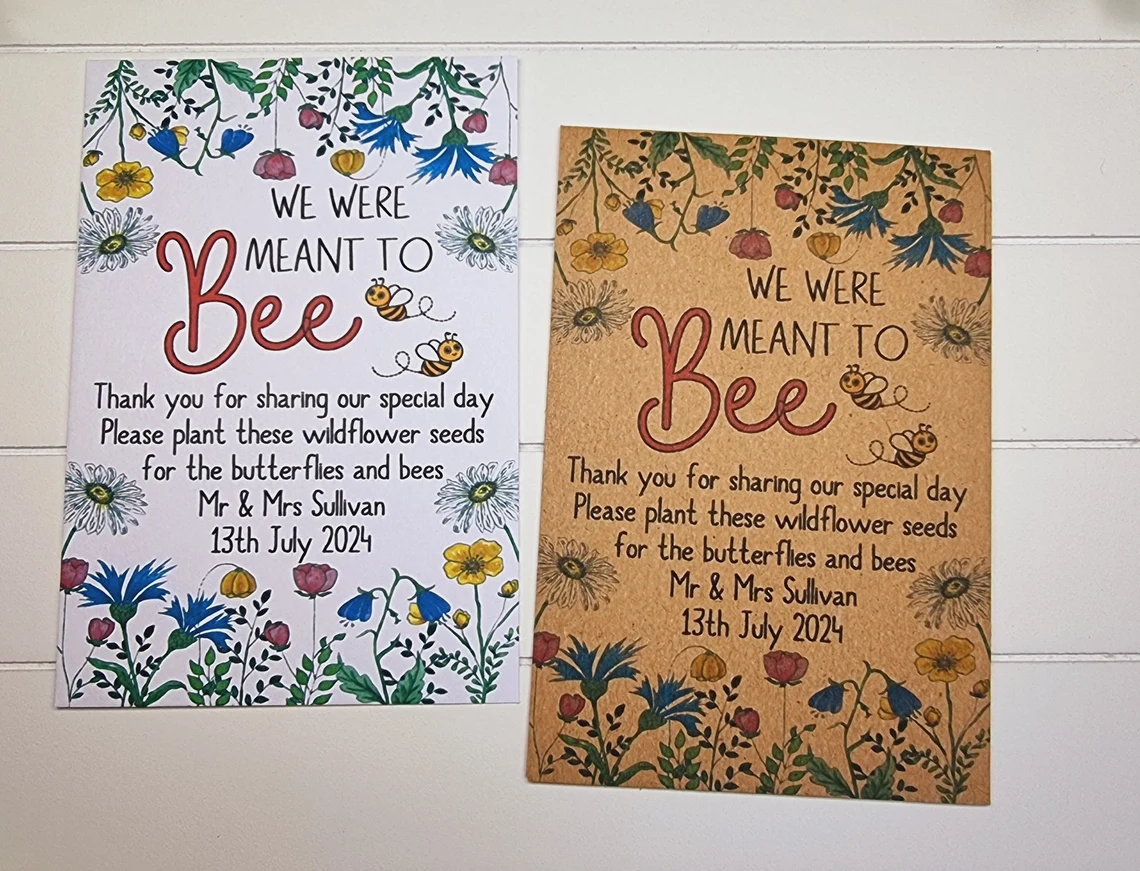 WE WERE
MEANT TO
Bee
Thank you for sharing our special day
Please plant these wildflower seeds
for the butterflies and bees
Mr & Mrs Sullivan
13th July 2024
WE WERE
MEANT TO
Bee
Thank you for sharing our special day
Please plant these wildflower seeds
for the butterflies and bees
Mr & Mrs Sullivan
13th July 2024